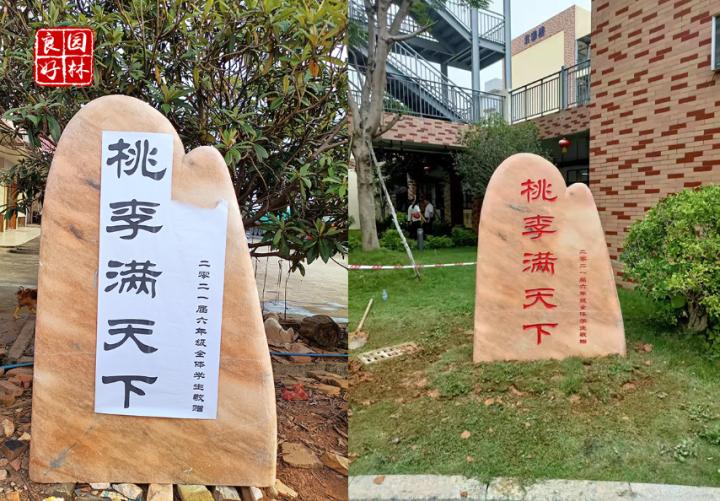 良好园林
桃李满天下
二零二一届六年级全体学生敬赠
桃李满天下
二零二一届六年级全体学生敬赠